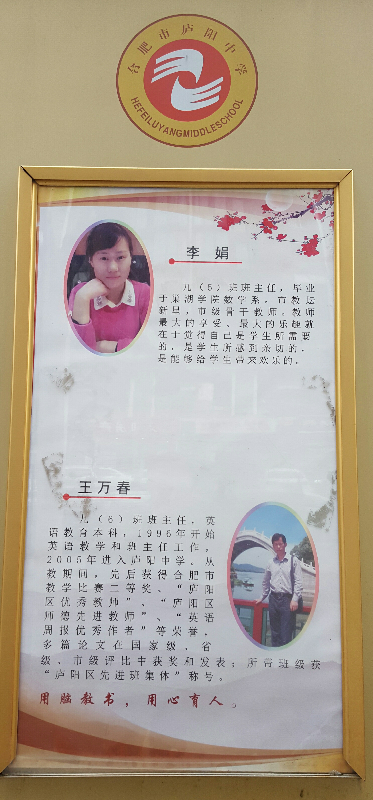 合肥市庐阳中学
HEFEILUYANGMIDDLESCHOOL
李 娟
九（5）班班主任，毕业
于巢湖学院数学系，市教坛
新星，市级骨干教师，教师
最大的享受、最大的乐趣就
在于觉得自己是学生所需要
的，是学生所感到亲切的，
是能够给学生带来欢乐的。
王万春
九（6）班班主任，英
语教育本科，1996年开始
英语教学和班主任工作，
2005年进入庐阳中学。从
教期间，先后获得合肥市
教学比赛二等奖、“庐阳
区优秀教师”、“庐阳区
师德先进教师”、“英语
周报优秀作者”等荣誉，
多篇论文在国家级、省
级、市级评比中获奖和发表；所带班级获
“庐阳区先进班集体”称号。
用脑教书，用心育人。